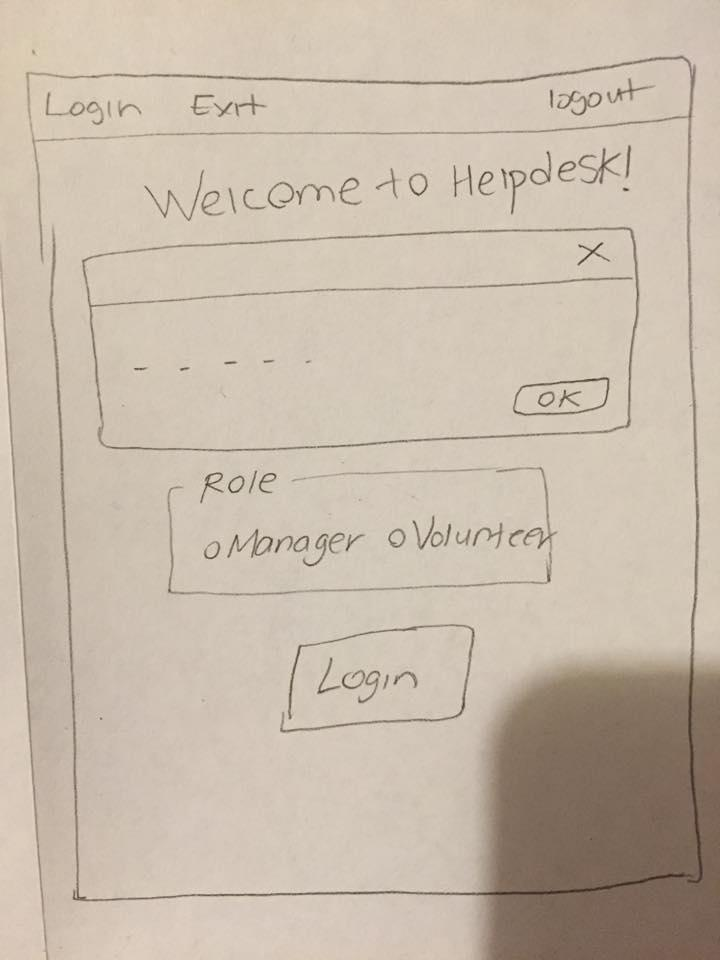 Login Exit logout
Welcome to Helpdesk!
X
- - - - -
OK
Role
o Manager o Volunteer
Login